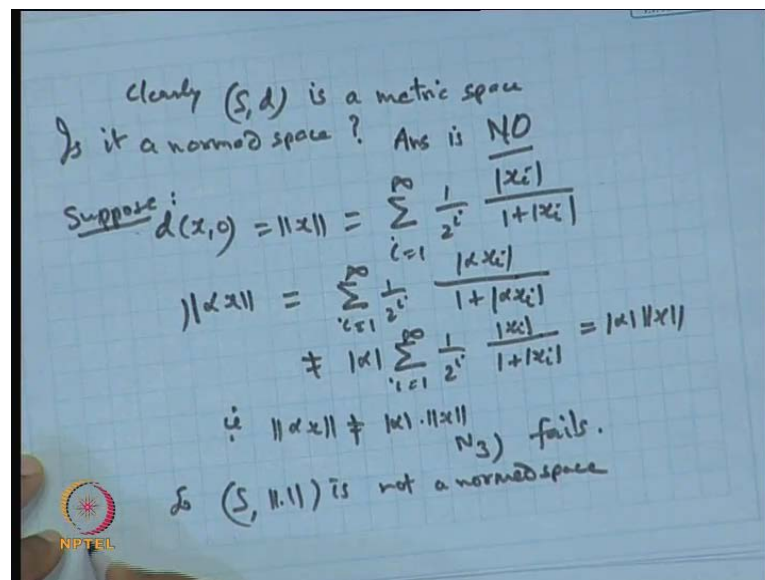 Clearly (S, d) is a metric space
Is it a normed space? Ans is NO
Suppose: d(x,0) = ||x|| = ∑_{i=1}^{∞} 1/2^i |x_i|/(1+|x_i|)
||αx|| = ∑_{i=1}^{∞} 1/2^i |αx_i|/(1+|αx_i|)
≠ |α| ∑_{i=1}^{∞} 1/2^i |x_i|/(1+|x_i|) = |α| ||x||
ie ||αx|| ≠ |α|.||x||
N3) fails.
So (S, ||.||) is not a normed space
NPTEL